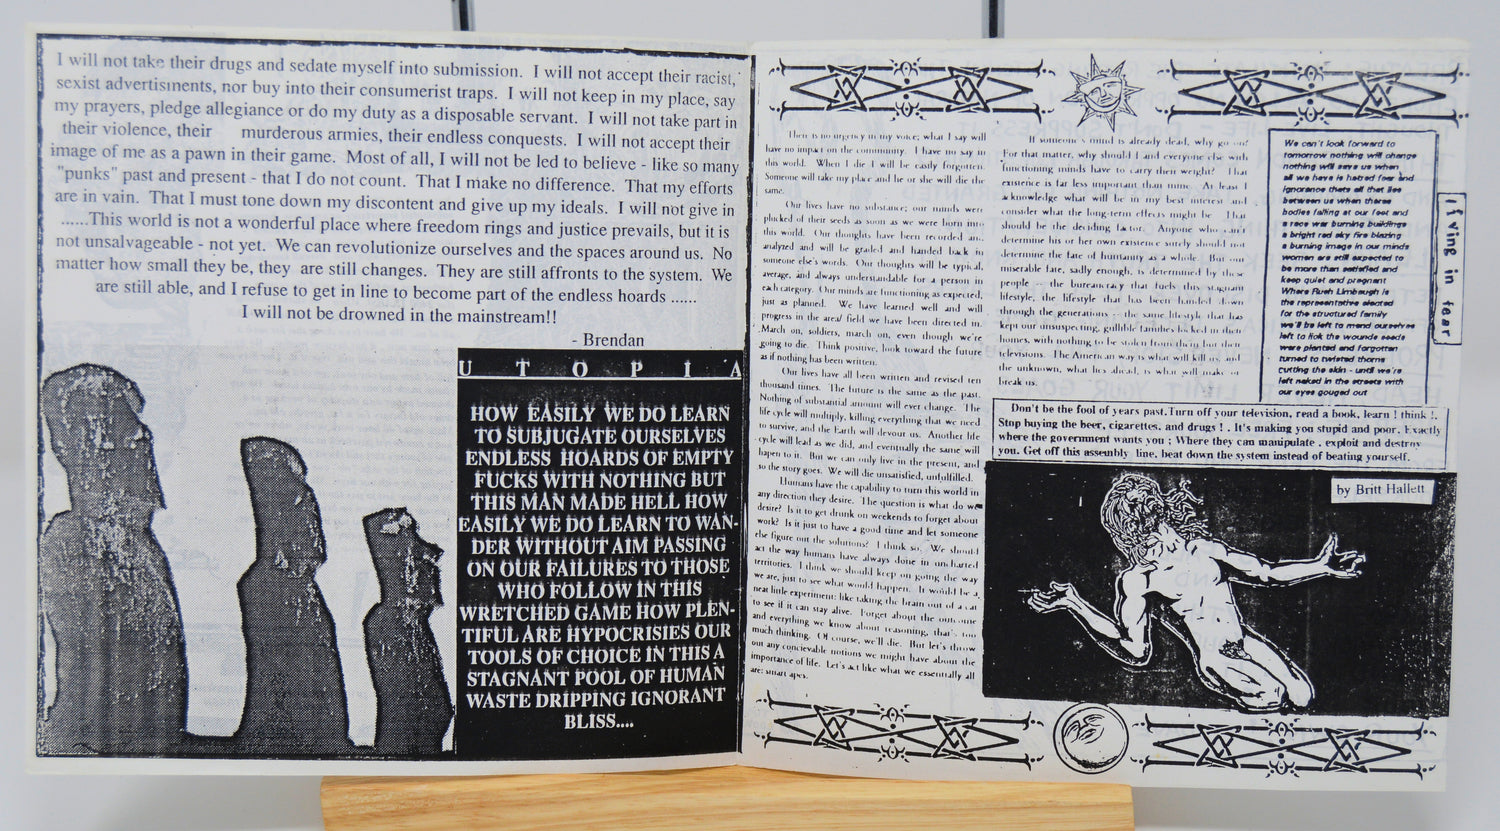 I will not take their drugs and sedate myself into submission. I will not accept their racist,
sexist advertisments, nor buy into their consumerist traps. I will not keep in my place, say
my prayers, pledge allegiance or do my duty as a disposable servant. I will not take part in
their violence, their murderous armies, their endless conquests. I will not accept their
image of me as a pawn in their game. Most of all, I will not be led to believe - like so many
"punks" past and present - that I do not count. That I make no difference. That my efforts
are in vain. That I must tone down my discontent and give up my ideals. I will not give in
......This world is not a wonderful place where freedom rings and justice prevails, but it is
not unsalvageable - not yet. We can revolutionize ourselves and the spaces around us. No
matter how small they be, they are still changes. They are still affronts to the system. We
are still able, and I refuse to get in line to become part of the endless hoards ......
I will not be drowned in the mainstream!!
- Brendan
UTOPIA
HOW EASILY WE DO LEARN
TO SUBJUGATE OURSELVES
ENDLESS HOARDS OF EMPTY
FUCKS WITH NOTHING BUT
THIS MAN MADE HELL HOW
EASILY WE DO LEARN TO WAN-
DER WITHOUT AIM PASSING
ON OUR FAILURES TO THOSE
WHO FOLLOW IN THIS
WRETCHED GAME HOW PLEN-
TIFUL ARE HYPOCRISIES OUR
TOOLS OF CHOICE IN THIS A
STAGNANT POOL OF HUMAN
WASTE DRIPPING IGNORANT
BLISS....
There is no urgency in my voice; what I say will
have no impact on the community. I have no say in
this world. When I die I will be easily forgotten.
Someone will take my place and he or she will die the
same.
Our lives have no substance; our minds were
plucked of their seeds as soon as we were born into
this world. Our thoughts have been recorded and
analyzed and will be graded and handed back in
someone else's words. Our thoughts will be typical,
average, and always understandable for a person in
each category. Our minds are functioning as expected,
just as planned. We have learned well and will
progress in the area/ field we have been directed in.
March on, soldiers, march on, even though we're
going to die. Think positive, look toward the future
as if nothing has been written.
Our lives have all been written and revised ten
thousand times. The future is the same as the past.
Nothing of substantial amount will ever change. The
life cycle will multiply, killing everything that we need
to survive, and the Earth will devour us. Another life
cycle will lead as we did, and eventually the same will
happen to it. But we can only live in the present, and
so the story goes. We will die unsatisfied, unfulfilled.
Humans have the capability to turn this world in
any direction they desire. The question is what do we
desire? Is it to get drunk on weekends to forget about
work? Is it just to have a good time and let someone
else figure out the solutions? I think so. We should
act the way humans have always done in uncharted
territories. I think we should keep on going the way
we are, just to see what would happen. It would be a
neat little experiment: like taking the brain out of a cat
to see if it can stay alive. Forget about the outcome
and everything we know about reasoning, that's too
much thinking. Of course, we'll die. But let's throw
out any concievable notions we might have about the
importance of life. Let's act like what we essentially all
are: smart apes.
If someone's mind is already dead, why go on?
For that matter, why should I and everyone else with
functioning minds have to carry their weight? That
existence is far less important than mine. At least I
acknowledge what will be in my best interest and
consider what the long-term effects might be. That
should be the deciding factor. Anyone who can't
determine his or her own existence surely should not
determine the fate of humanity as a whole. But our
miserable fate, sadly enough, is determined by these
people - the bureaucracy that fuels this stagnant
lifestyle, the lifestyle that has been handed down
through the generations - the same lifestyle that has
kept our unsuspecting, gullible families locked in their
homes, with nothing to be stolen from them but their
televisions. The American way is what will kill us, and
the unknown, what lies ahead, is what will make or
break us.
We can't look forward to
tomorrow nothing will change
nothing will save us when
all we have is hatred fear and
ignorance thats all that lies
between us when these
bodies falling at our feet and
a race war burning buildings
a bright red sky fire blazing
a burning image in our minds
women are still expected to
be more than satisfied and
keep quiet and pregnant
Where Rush Limbaugh is
the representative elected
for the structured family
we'll be left to mend ourselves
left to lick the wounds seeds
were planted and forgotten
turned to twisted thorns
cutting the skin - until we're
left naked in the streets with
our eyes gouged out
living in fear
Don't be the fool of years past.Turn off your television, read a book, learn ! think !.
Stop buying the beer, cigarettes, and drugs ! . It's making you stupid and poor. Exactly
where the government wants you ; Where they can manipulate , exploit and destroy
you. Get off this assembly line, beat down the system instead of beating yourself.
by Britt Hallett